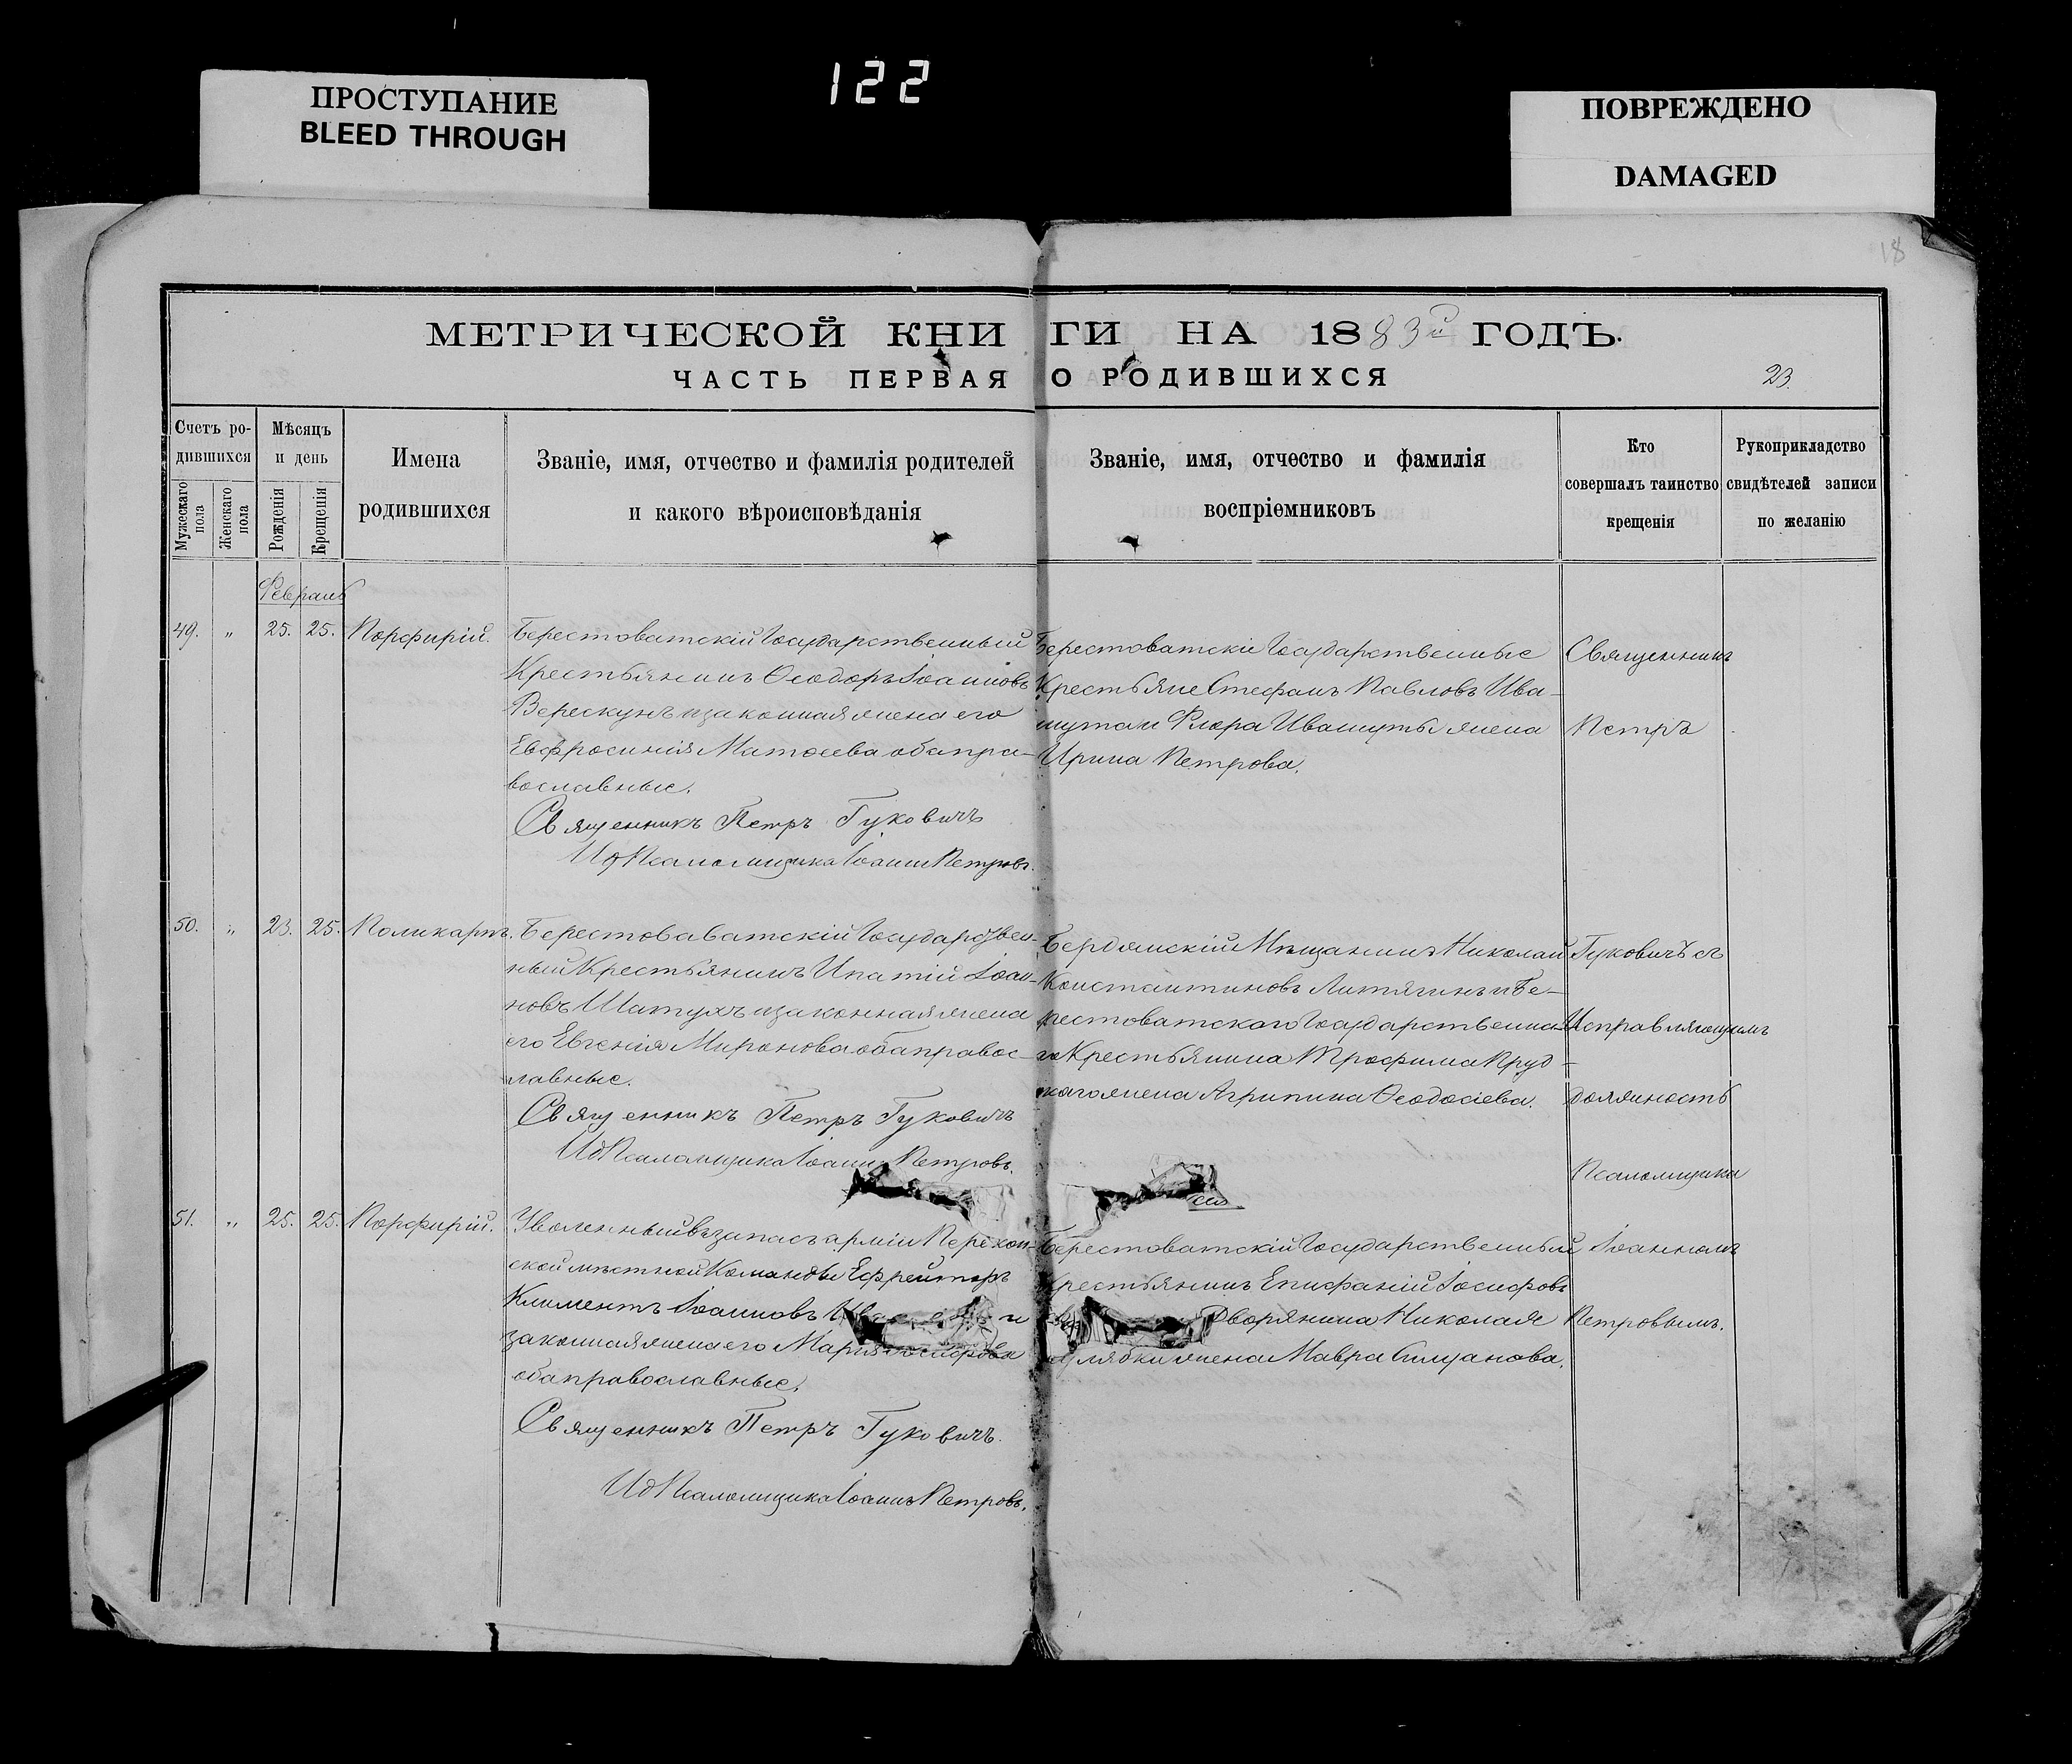 122
ПРОСТУПАНИЕ
BLEED THROUGH
ПОВРЕЖДЕНО
DAMAGED
18
МЕТРИЧЕСКОЙ КНИГИ НА 1883й ГОДЪ.
ЧАСТЬ ПЕРВАЯ О РОДИВШИХСЯ
23.
Счетъ ро-
дившихся
Мужескаго пола
Женскаго пола
Мѣсяцъ
и день
Рожденія
Крещенія
Имена
родившихся
Званіе, имя, отчество и фамилія родителей
и какого вѣроисповѣданія
Званіе, имя, отчество и фамилія
воспріемниковъ
Кто
совершалъ таинство
крещенія
Рукоприкладство
свидѣтелей записи
по желанію
Февраль
49. „ 25. 25. Порфирій.
Берестоватскій Государственный
Крестьянинъ Ѳеодоръ Іоанновъ
Верескунъ и законная жена его
Евфросинія Матѳеева оба пра-
вославные.
Священникъ Петръ Гуковичъ
Ид Псаломщика Іоаннъ Петровъ.
Берестоватскіе Государственные
Крестьяне Стефанъ Павловъ Ива-
Флора Ивашуты жена
Ирина Петрова.
50. „ 23. 25. Поликарпъ.
Берестовабатскій Государствен-
ный Крестьянинъ Ипатій Іоан-
новъ Шатухъ и законная жена
его Евгенія Миронова оба правос-
лавные.
Священникъ Петръ Гуковичъ
Ид Псаломщика Іоаннъ Петровъ.
Бердянскій Мѣщанинъ Николай
Константиновъ Литягинъ и Бе-
рестоватского Государственна-
го Крестьянина Трофима Пруд-
каго жена Агрипина Ѳеодосіева.
51. „ 25. 25. Порфирій.
Уволенный въ запасъ арміи Перекоп-
ской мѣстной Команды Ефрейторъ
Климентъ Іоанновъ и
законная жена его Марія Іосифова
оба православные.
Священникъ Петръ Гуковичъ.
Ид Псаломщика Іоаннъ Петровъ.
Берестоватскій Государственный
Крестьянинъ Епифаній Іосифовъ
Дворянина Николая
жена Мавра
Священникъ
Петръ
Гуковичъ съ
Исправляющимъ
должность
Псаломщика
Іоанномъ
Петровымъ.